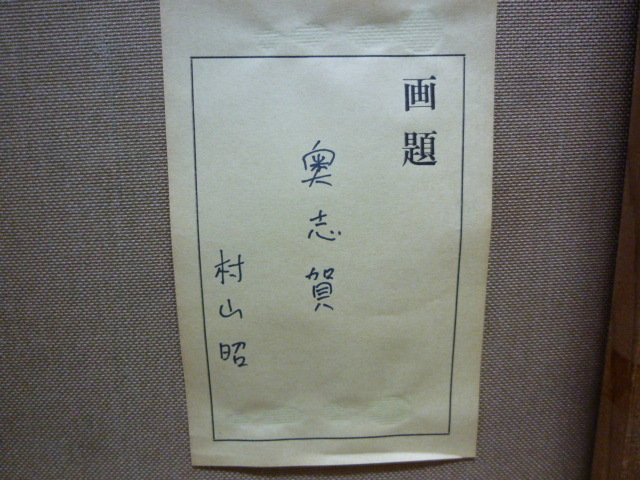 画題
奥志賀
村山昭